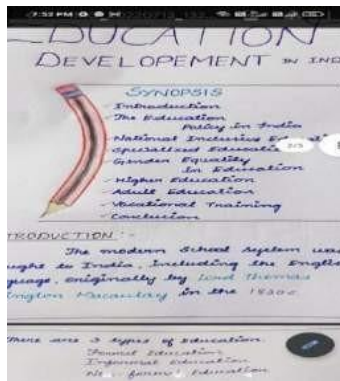 7:52 PM
EDUCATION
DEVELOPEMENT IN IND
SYNOPSIS
Introduction
The Education
Policy in India
National Inclusive Educati
Specialized Educatio
2/3
Gender Equality
in Education
Higher Education
Adult Education
Vocational Training
Conclusion
TRODUCTION :-
The modern School system was
ught to India, including the Engli
guage, originally by Lord Thomas
ington Macaulay in the 1830s
There are 3 types of Education
Formal Education
Informal Education
Education